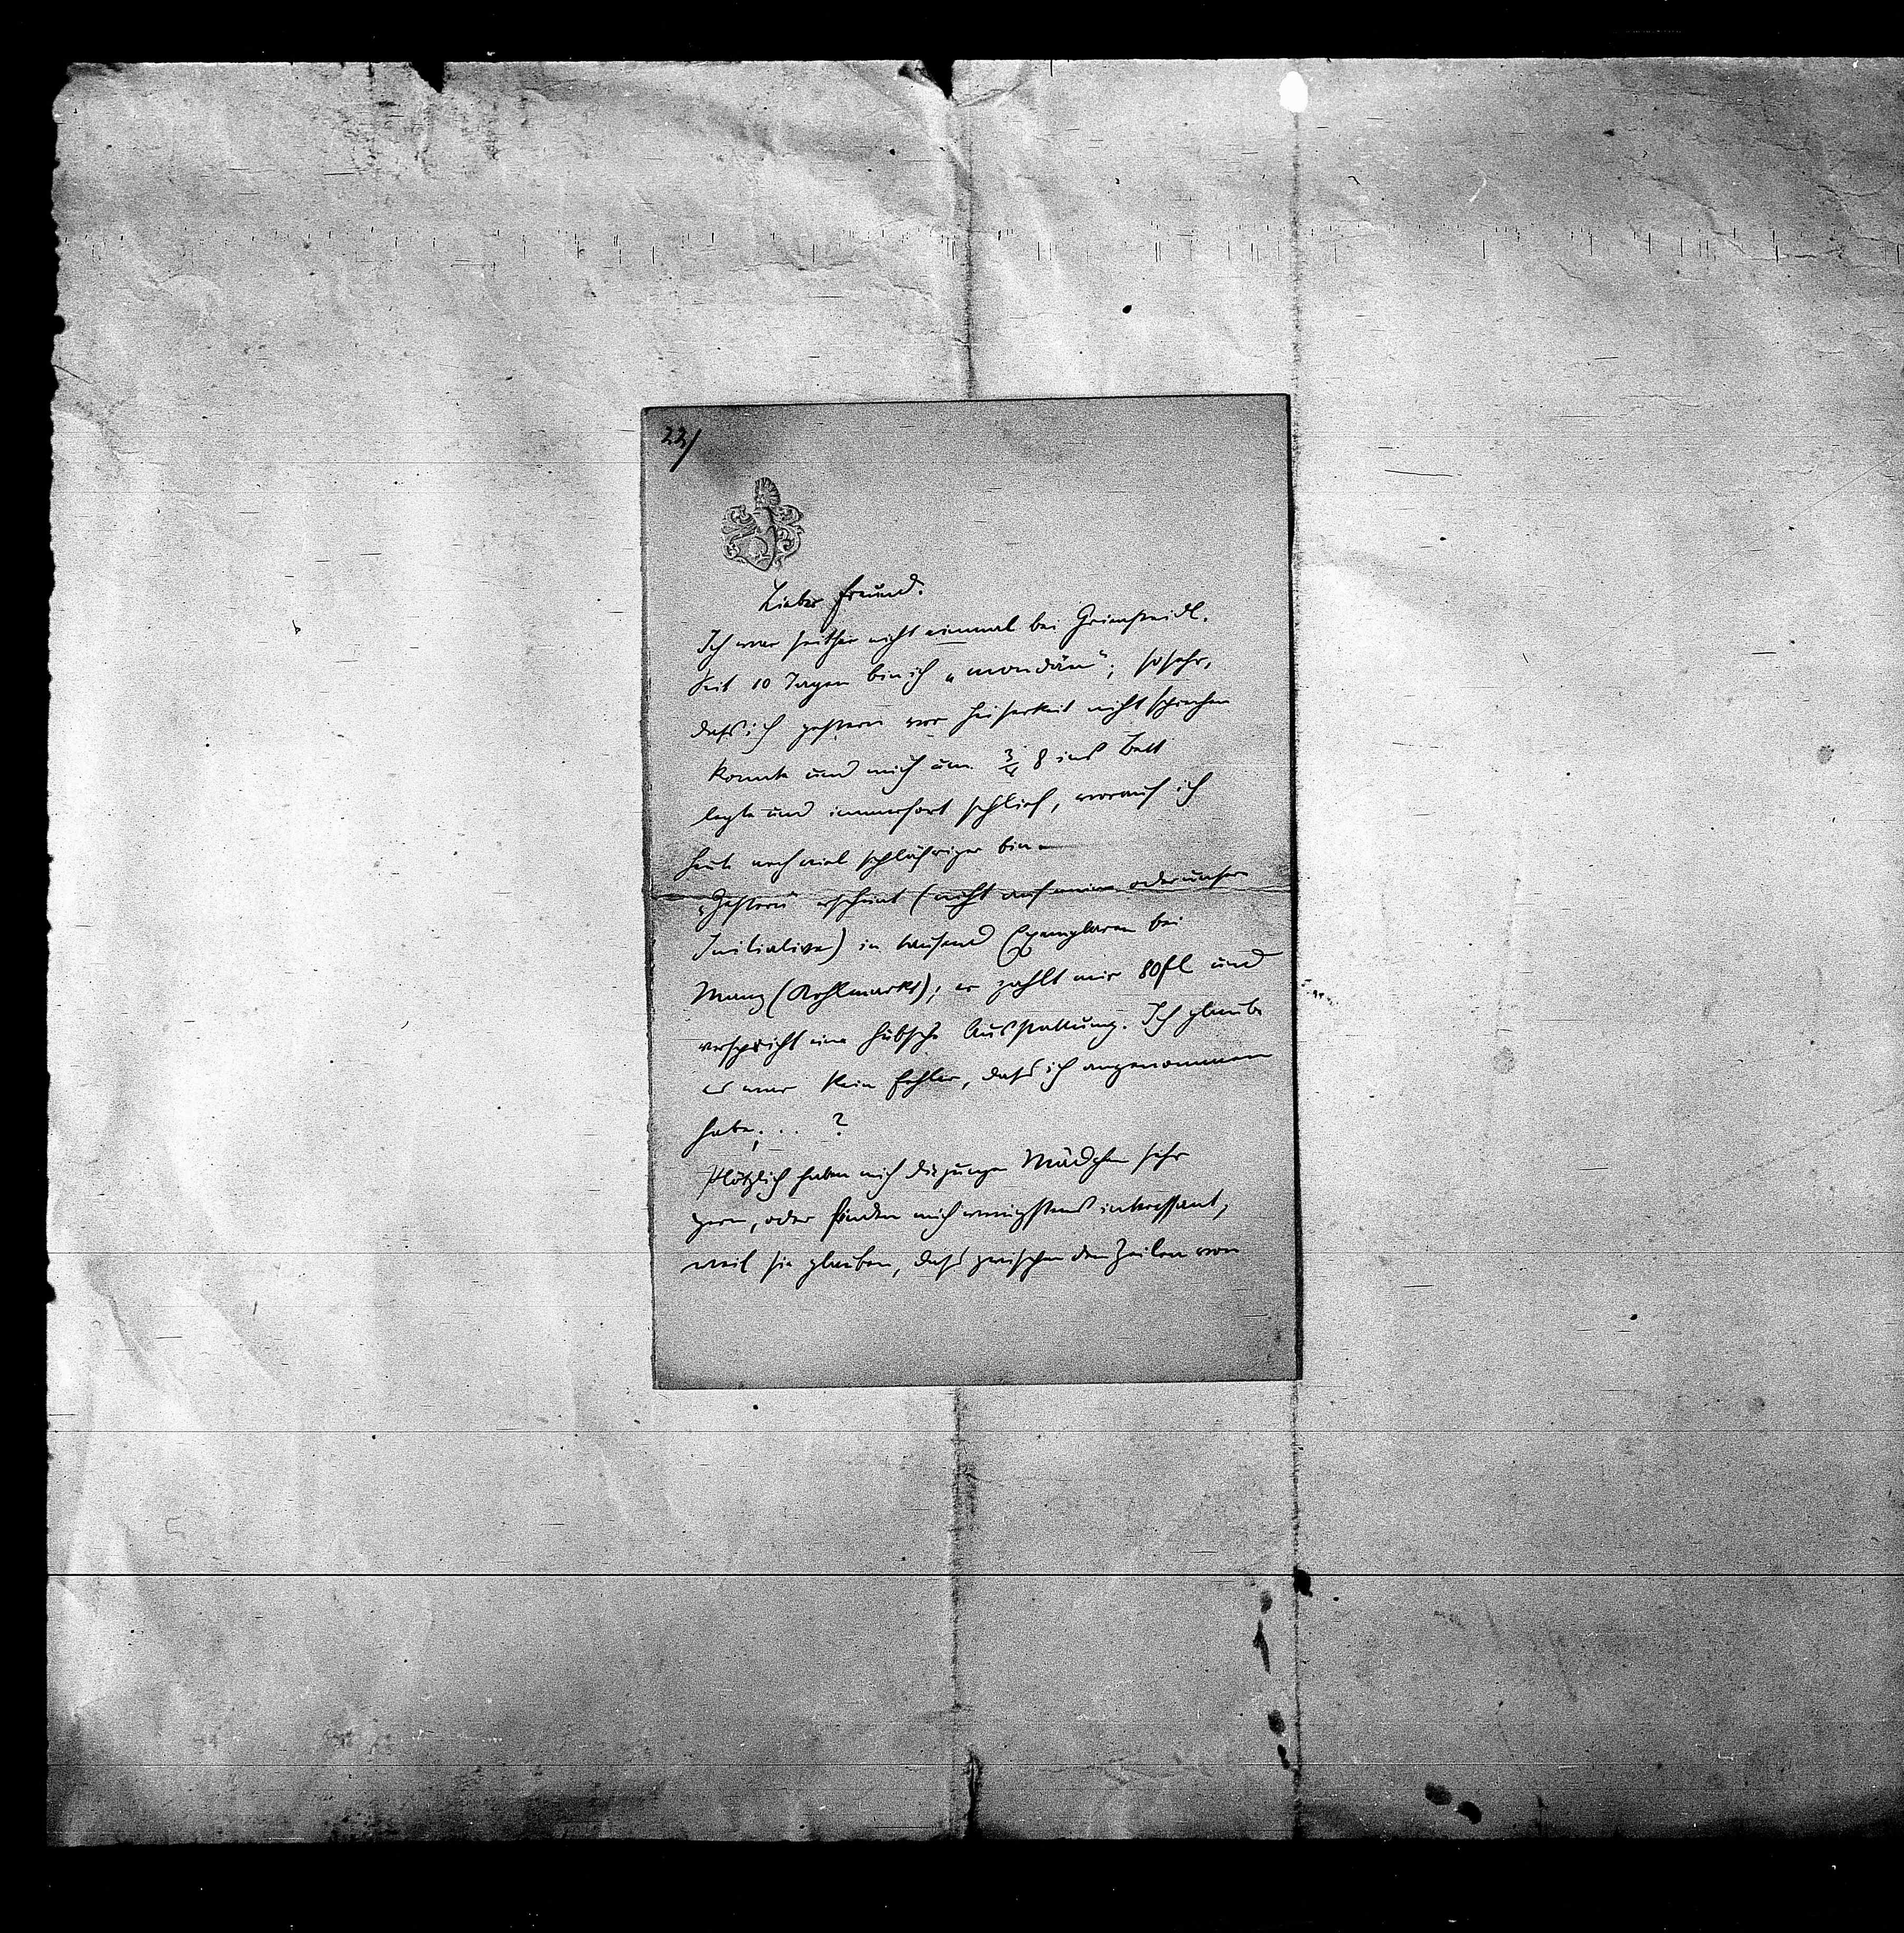 22/
Lieber Freund.
Ich war seither nicht einmal bei Griensteidl.
Seit 10 Tagen bin ich „mondän“; so sehr,
dass ich gestern vor Heiserkeit nicht sprechen
konnte und mich um 3/4 8 ins Bett
legte und immerfort schlief, worauf ich
heute noch viel schläfriger bin.
„Gestern“ erscheint (nicht auf meine oder unsere
Initiative) in tausend Exemplaren bei
Manz (Kohlmarkt); er zahlt mir 80 fl und
verspricht eine hübsche Ausstattung. Ich glaube
es war kein Fehler, dass ich angenommen
habe; . . . ?
Plötzlich haben mich die jungen Mädchen sehr
gern, oder finden mich wenigstens interessant,
weil sie glauben, dass zwischen den Zeilen von